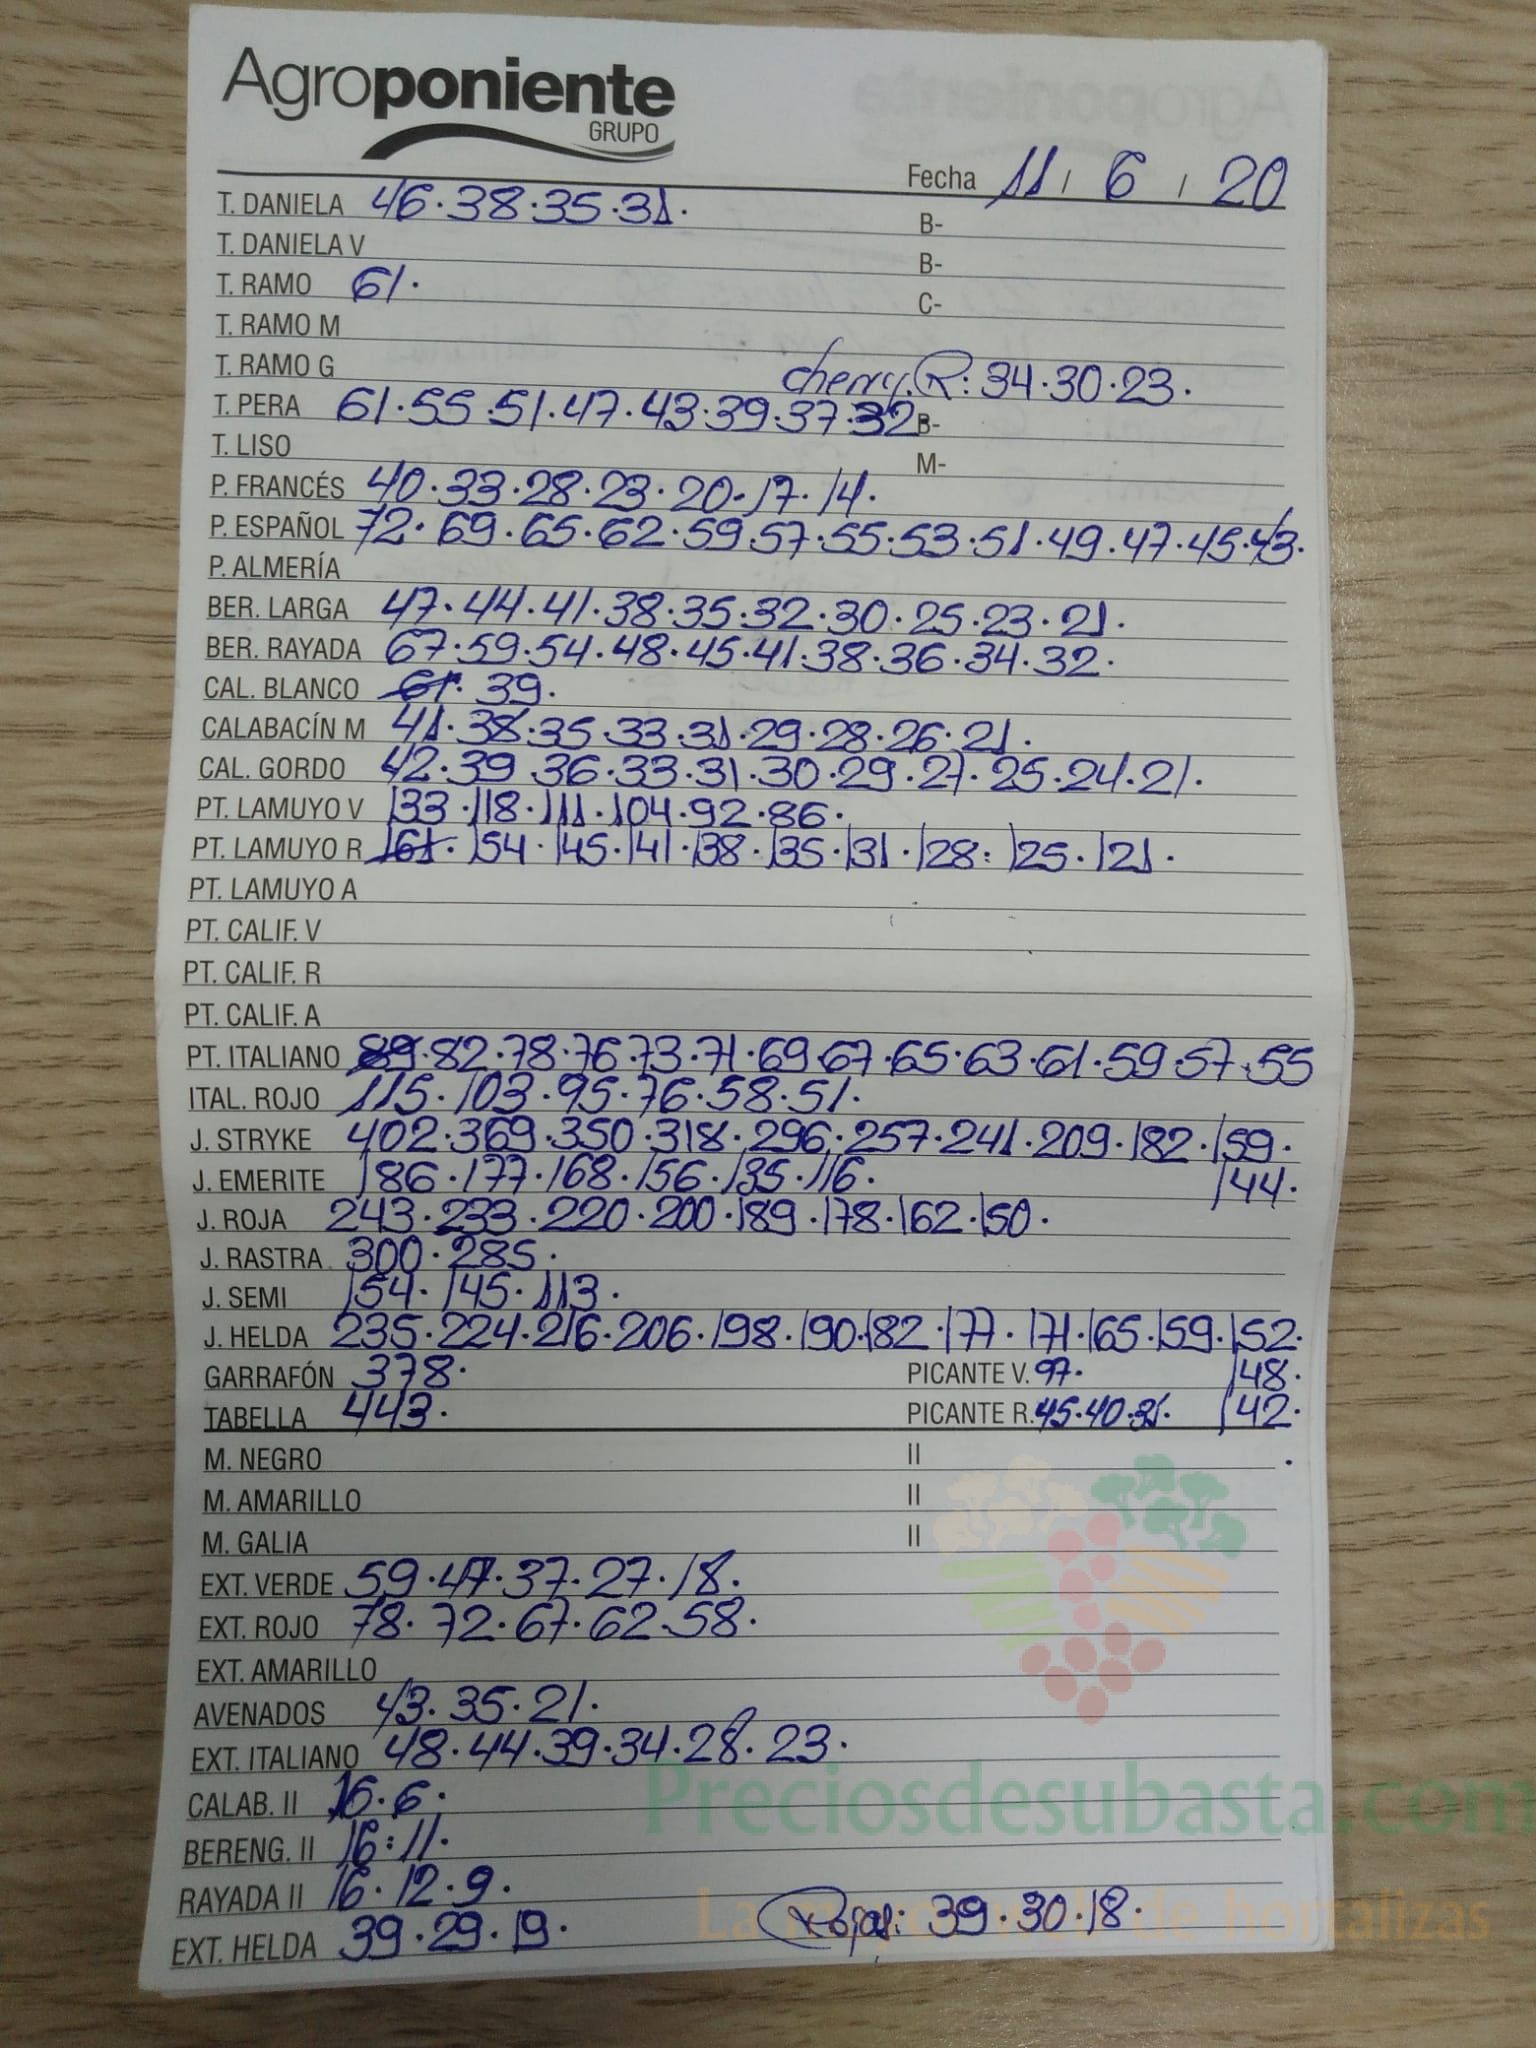 Agroponiente
GRUPO
Fecha 11 / 6 / 20
T. DANIELA 46.38.35.31. B-
T. DANIELA V B-
T. RAMO 61. C-
T. RAMO M
T. RAMO G cherry.R: 34.30.23.
T. PERA 61.55.51.47.43.39.37.32. B-
T. LISO M-
P. FRANCÉS 40.33.28.23.20.17.14.
P. ESPAÑOL 72.69.65.62.59.57.55.53.51.49.47.45.43.
P. ALMERÍA
BER. LARGA 47.44.41.38.35.32.30.25.23.21.
BER. RAYADA 67.59.54.48.45.41.38.36.34.32.
CAL. BLANCO 61. 39.
CALABACÍN M 41.38.35.33.31.29.28.26.21.
CAL. GORDO 42.39.36.33.31.30.29.27.25.24.21.
PT. LAMUYO V 133.118.111.104.92.86.
PT. LAMUYO R 161.154.145.141.138.135.131.128:125.121.
PT. LAMUYO A
PT. CALIF. V
PT. CALIF. R
PT. CALIF. A
PT. ITALIANO 89.82.78.76.73.71.69.67.65.63.61.59.57.55
ITAL. ROJO 115.103.95.76.58.51.
J. STRYKE 402.369.350.318.296.257.241.209.182.159.
J. EMERITE 186.177.168.156.135.116. 144.
J. ROJA 243.233.220.200.189.178.162.150.
J. RASTRA 300.285.
J. SEMI 154.145.113.
J. HELDA 235.224.216.206.198.190.182.177.171.165.159.152.
GARRAFÓN 378. PICANTE V. 97. 148.
TABELLA 443. PICANTE R. 45.40.31. 142.
M. NEGRO II .
M. AMARILLO II
M. GALIA II
EXT. VERDE 59.47.37.27.18.
EXT. ROJO 78.72.67.62.58.
EXT. AMARILLO
AVENADOS 43.35.21.
EXT. ITALIANO 48.44.39.34.28.23.
CALAB. II 16.6.
Preciosdesubasta.com
BERENG. II 16:11.
RAYADA II 16.12.9.
EXT. HELDA 39.29.19. Rojas: 39.30.18.
de hortalizas